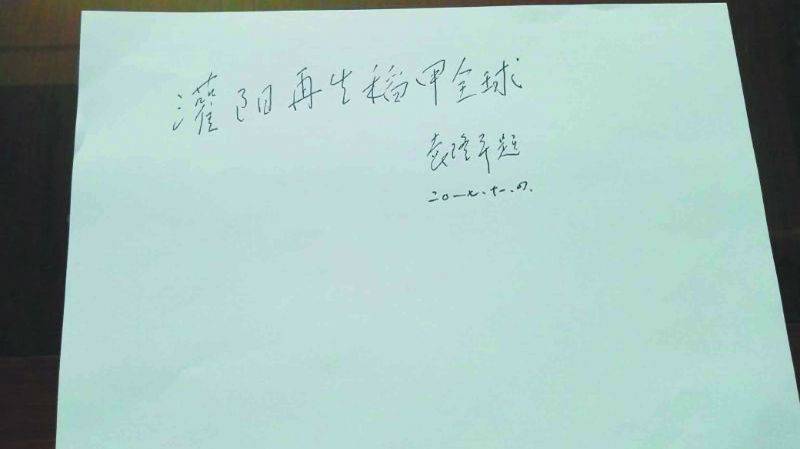 灌阳再生稻甲全球
袁隆平题
二0一七.十一.四.